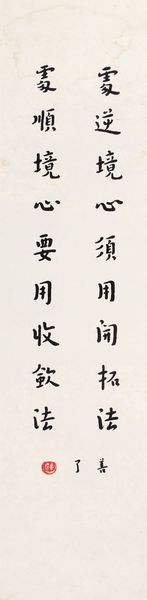 處逆境心須用開拓法
處順境心要用收斂法
善
了